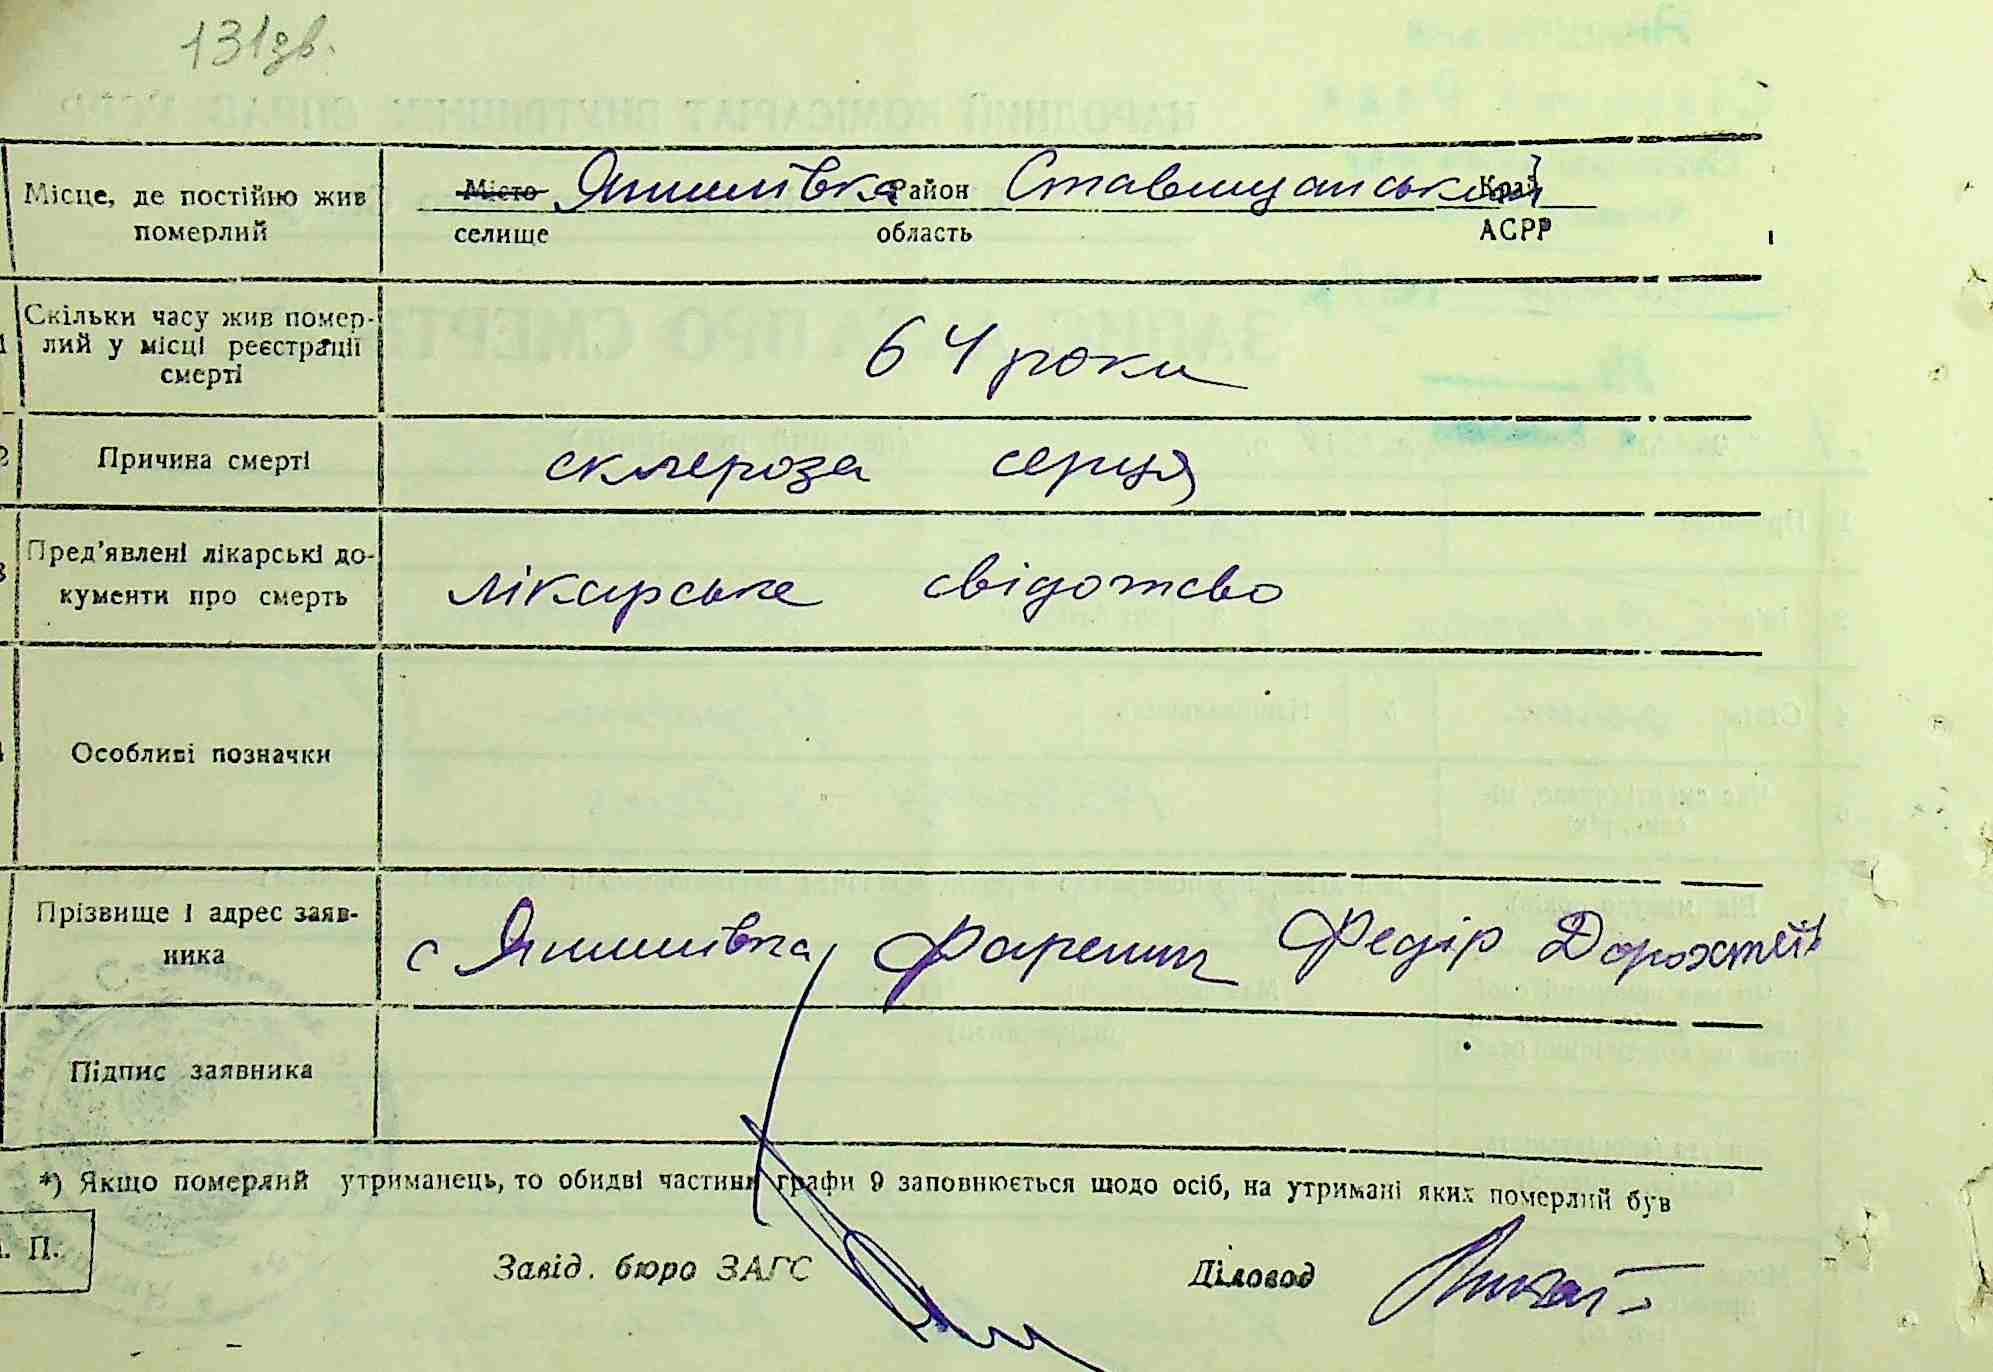 131зв.
Місце, де постійно жив
померлий
Місто Янишівка Район Ставищанський Край
селище область АСРР
Скільки часу жив помер-
лий у місці реєстрації
смерті
64 роки
Причина смерті
склероза серця
Пред'явлені лікарські до-
кументи про смерть
лікарське свідотсво
Особливі позначки
Прізвище і адрес заяв-
ника
с Янишівка Федір
Підпис заявника
*) Якщо померлий утриманець, то обидві частини графи 9 заповнюється щодо осіб, на утримані яких померлий був
П.
Завід. бюро ЗАГС Діловод